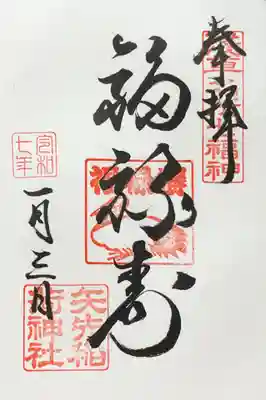 奉拝
福禄寿
令和七年
一月三日
矢先稲荷神社